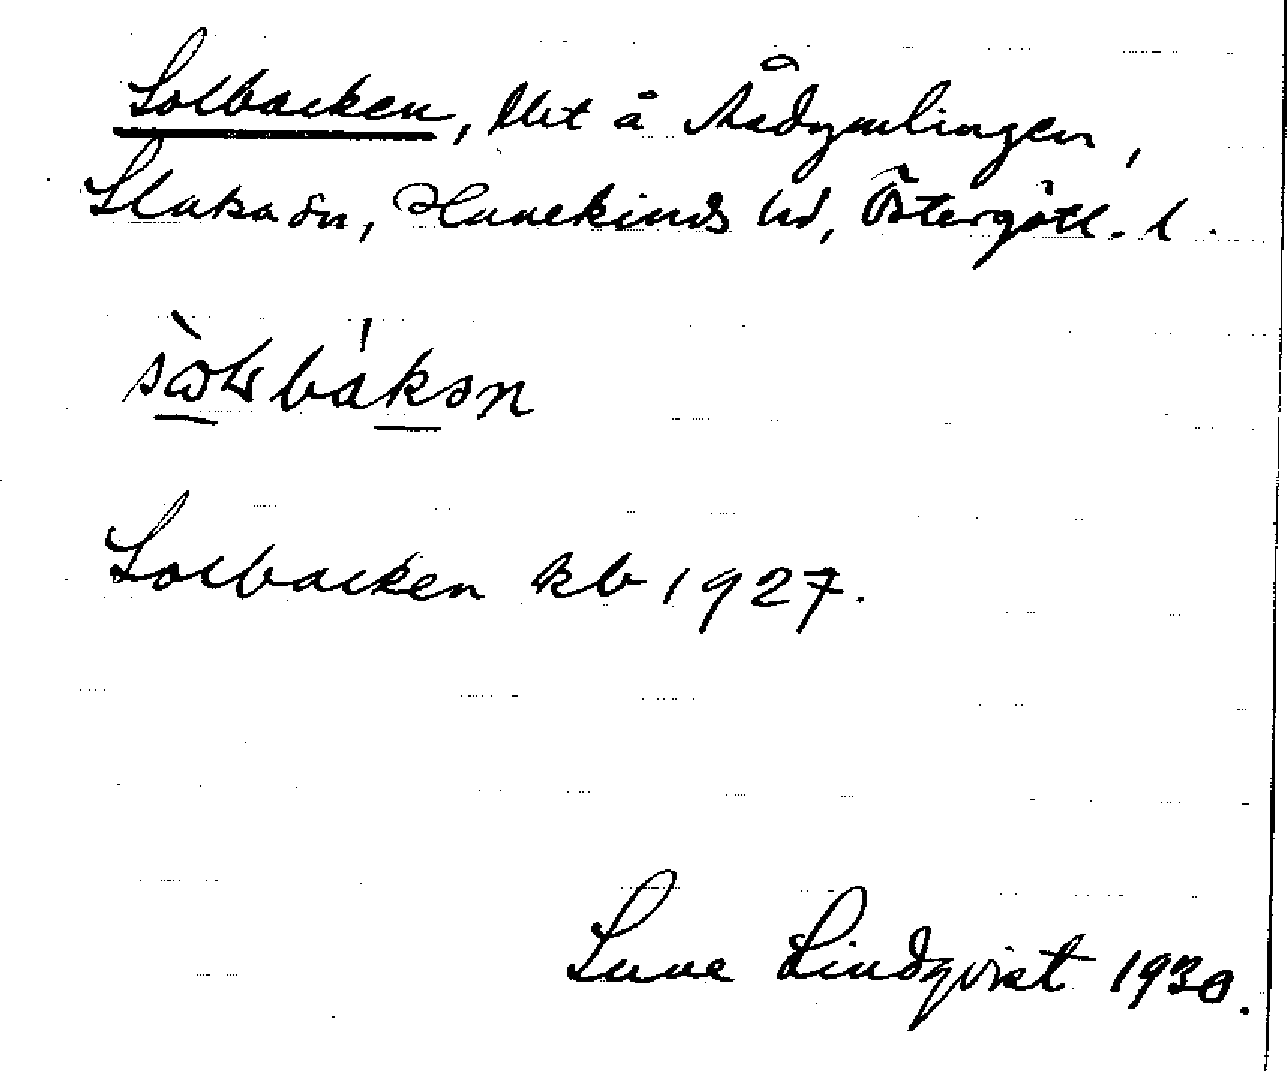 Solbacken, lht å Rådymlingen,
Slaka sn, Hanekinds hd, Östergötl. l.
Solbacken kb 1927.
Sune Lindqvist 1930.